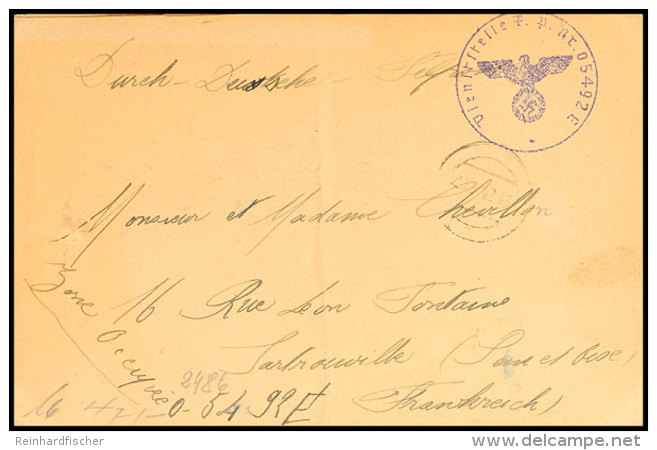 Dienststelle F. P. Nr. 05492 E
Durch - Deutsche -
Monsieur et Madame Chevillon
16 Rue Léon Fontaine
Sartrouville (Seine et Oise)
Frankreich)
Zone Occupée
8486
16 0-5492 E
Reinhardfischer
delcampe.net